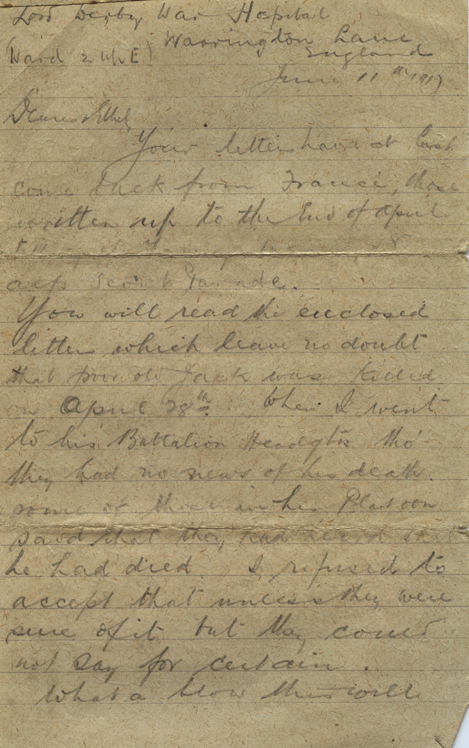 Lord Derby War Hospital
(Ward 2 Up E) Warrington Lanc
England
June 11th 1917
Dearest Ethel,
Your letters have at last
come back from France, those
written up to the End of April
You will read the enclosed
letters which leave no doubt
that poor old Jack was killed
on April 28th. When I went
to his Battalion Headqtrs tho'
they had no news of his death.
some of those in his Platoon
said that they had heard that
he had died. I refused to
accept that unless they were
sure of it but they could
not say for certain.
What a blow this will